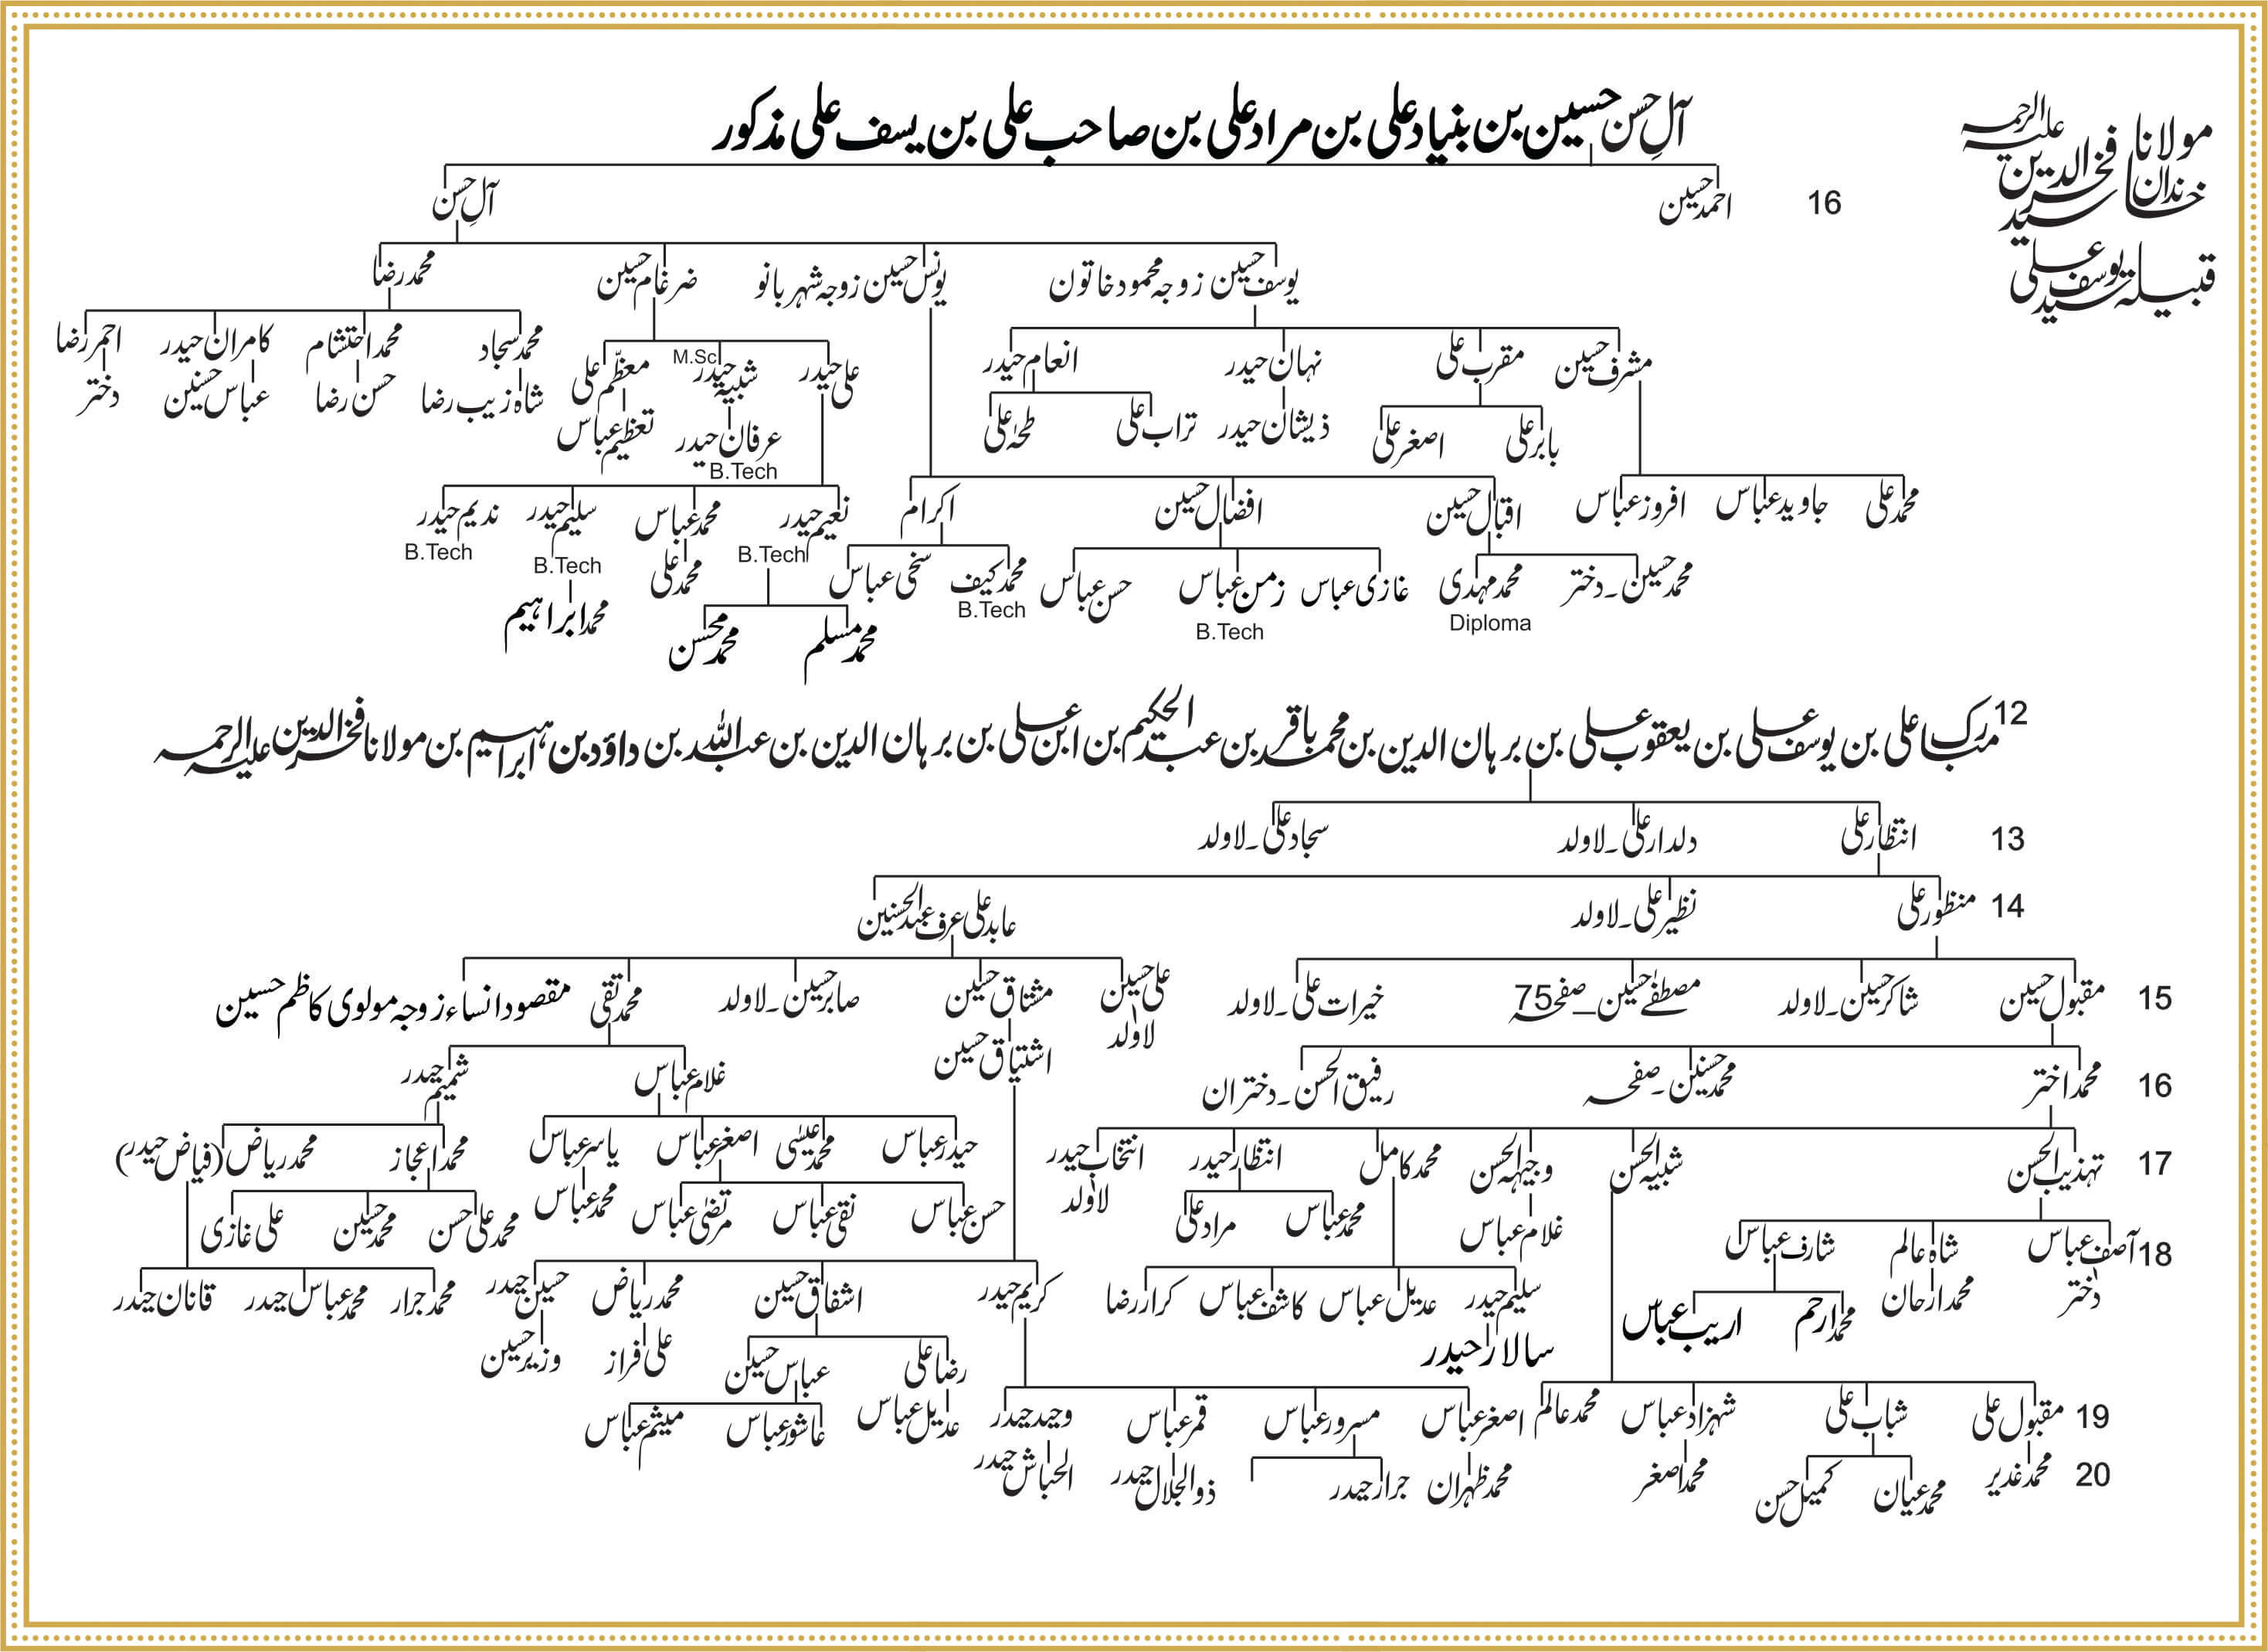 مولانا سید فخرالدین علیہ الرحمہ
خاندان
قبیلہ سید یوسف علی
آلِ حسن حسین بن بنیاد علی بن مراد علی بن صاحب علی بن یسف علی مذکور
16 احمد حسین آلِ حسن
یوسف حسین زوجہ محمود خاتون یونس حسین زوجہ شہر بانو ضرغام حسین محمد رضا
مشرف حسین مقرب علی نہان حیدر انعام حیدر علی حیدر شبیہ حیدر M.Sc معظّم علی محمد سجاد محمد احتشام کامران حیدر احمر رضا
بابر علی اصغر علی ذیشان حیدر تراب علی طحہٰ علی عرفان حیدر تعظیم عباس شاہ زیب رضا حسن رضا عباس حسنین دختر
B.Tech
محمد علی جاوید عباس افروز عباس اقبال حسین افضال حسین اکرام نعیم حیدر محمد عباس سلیم حیدر ندیم حیدر
B.Tech B.Tech B.Tech
محمد حسین۔دختر محمد مہدی غازی عباس زمن عباس حسن عباس محمد کیف سخی عباس محمد علی
Diploma B.Tech B.Tech
محمد مسلم محمد محسن محمد ابراہیم
12 مبارک علی بن یوسف علی بن یعقوب علی بن برہان الدین بن محمد باقر بن عبد الحکیم بن ابن علی بن برہان الدین بن عبد اللہ بن داؤد بن ابراہیم بن مولانا فخرالدین علیہ الرحمہ
13 انتظار علی دلدار علی۔لاولد سجاد علی۔لاولد
14 منظور علی نظیر علی۔لاولد عابد علی عرف عبد الحسنین
15 مقبول حسین شاکر حسین۔لاولد مصطفےٰ حسین_صفحہ 75 خیرات علی۔لاولد علی حسین مشتاق حسین صابر حسین۔لاولد محمد تقی مقصود انساء زوجہ مولوی کاظم حسین
لاولد
16 محمد اختر محمد حسنین۔صفحہ رفیق الحسن۔دختران اشتیاق حسین غلام عباس شمیم حیدر
17 تہذیب الحسن شبیہ الحسن وجیہہ الحسن محمد کامل انتظار حیدر انتخاب حیدر حیدر عباس محمد عیسٰی اصغر عباس یاسر عباس محمد اعجاز محمد ریاض (فیاض حیدر)
غلام عباس محمد عباس مراد علی لاولد حسن عباس نقی عباس مرتضٰی عباس محمد عباس محمد علی حسن محمد حسین علی غازی
18 آصف عباس شاہ عالم شارف عباس
دختر محمد ارحان محمد ارحم اریب عباس سلیم حیدر عدیل عباس کاشف عباس کرار رضا کریم حیدر اشفاق حسین محمد ریاض حسین حیدر محمد جرار محمد عباس حیدر قانان حیدر
سالار حیدر رضا علی عباس حسین علی افراز وزیر حسین
19 مقبول علی شباب علی شہزاد عباس محمد عالم اصغر عباس مسرور عباس قمر عباس وحید حیدر عدیل عباس عاشور عباس میثم عباس
20 محمد غدیر محمد عیان کمیل حسن محمد اصغر محمد ظہران جرار حیدر ذوالجلال حیدر الحباش حیدر